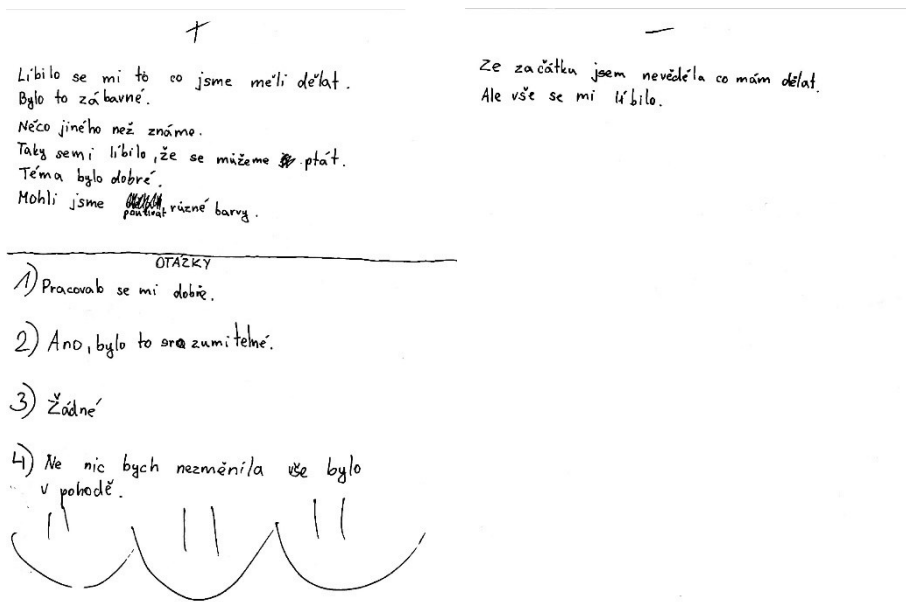 +
Líbilo se mi to co jsme měli dělat.
Bylo to zábavné.
Něco jiného než známe.
Taky semi líbilo, že se můžeme ptát.
Téma bylo dobré.
Mohli jsme používat různé barvy.
OTÁZKY
1) Pracovalo se mi dobře.
2) Ano, bylo to srozumitelné.
3) Žádné
4) Ne nic bych nezměnila vše bylo
v pohodě.
—
Ze začátku jsem nevěděla co mám dělat.
Ale vše se mi líbilo.